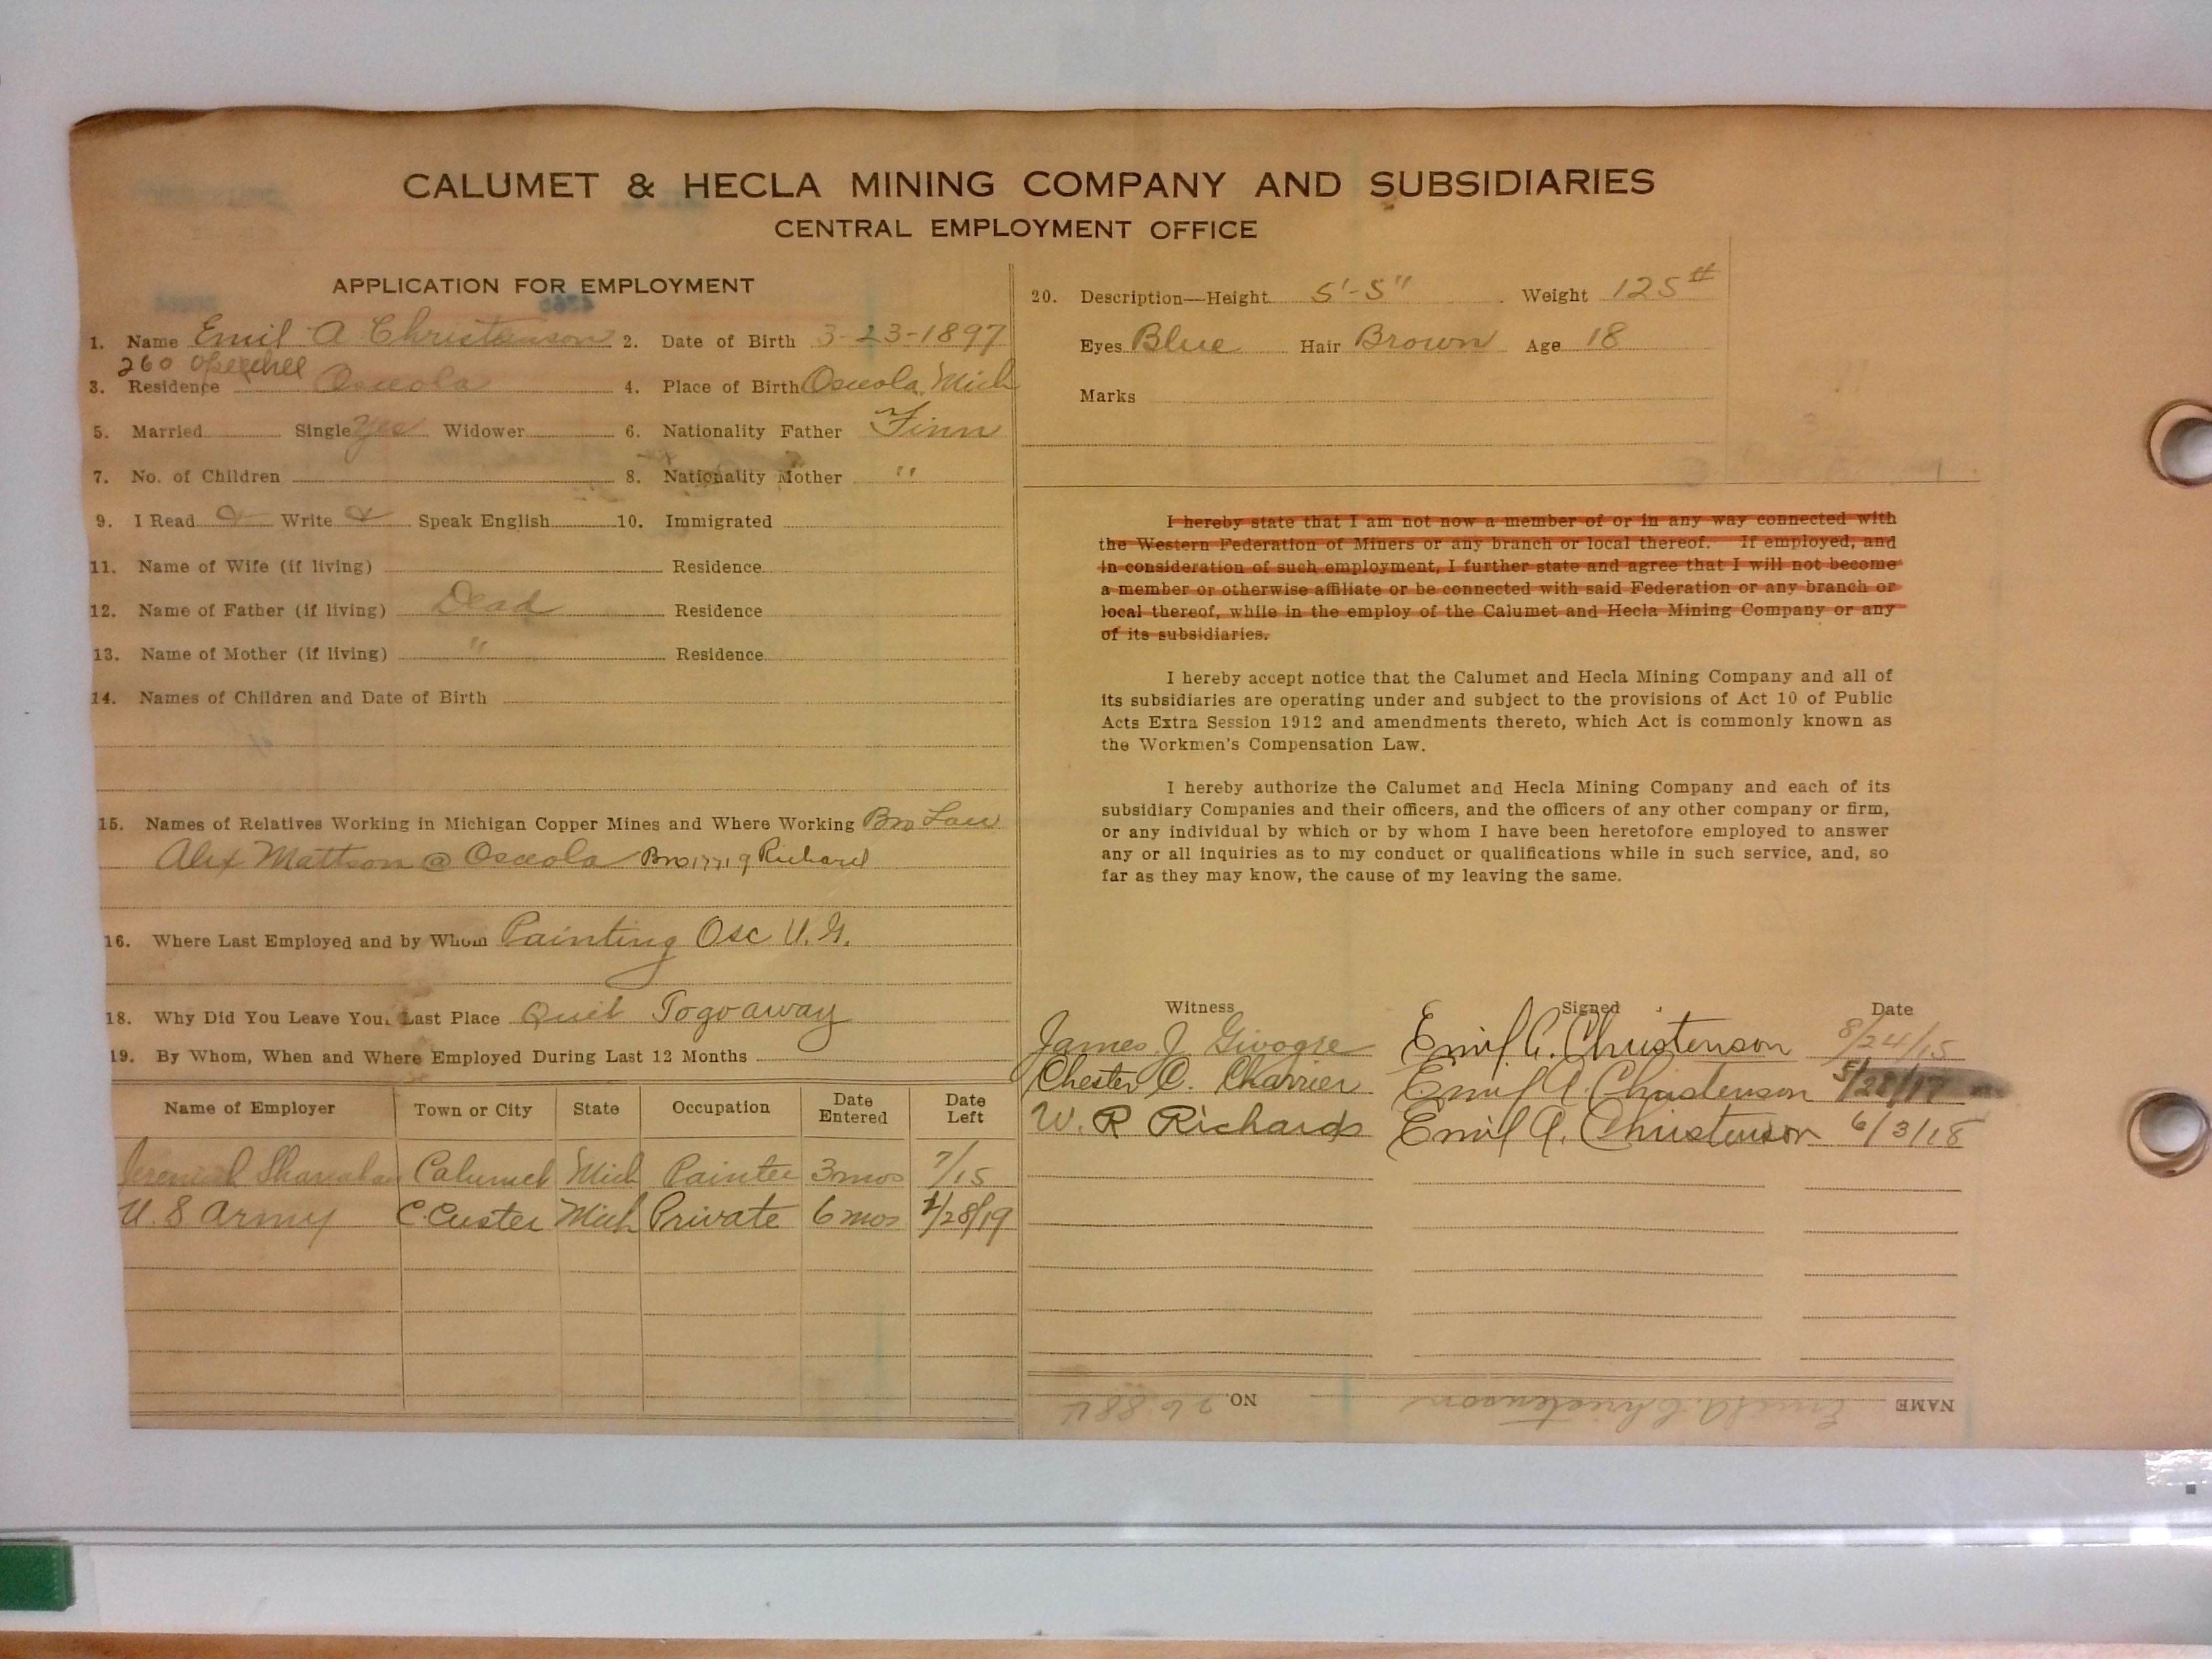 CALUMET & HECLA MINING COMPANY AND SUBSIDIARIES
CENTRAL EMPLOYMENT OFFICE
APPLICATION FOR EMPLOYMENT
1. Name Emil A Christenson 2. Date of Birth 3-23-1897
260
3. Residence Osceola 4. Place of Birth Osceola, Mich
5. Married Single Yes Widower 6. Nationality Father Finn
7. No. of Children 8. Nationality Mother "
9. I Read Write Speak English 10. Immigrated
11. Name of Wife (if living) Residence
12. Name of Father (if living) Dead Residence
13. Name of Mother (if living) " Residence
14. Names of Children and Date of Birth
15. Names of Relatives Working in Michigan Copper Mines and Where Working Bro Law
Alex Mattson @ Osceola Bro Richard
16. Where Last Employed and by Whom Painting Osc U.G.
18. Why Did You Leave Your Last Place Quit To go away
19. By Whom, When and Where Employed During Last 12 Months
Name of Employer Town or City State Occupation Date Entered Date Left
Jeremiah Shanahan Calumet Mich Painter 3 mos 7/15
U.S Army C. Custer Mich Private 6 mos /28/19
20. Description—Height 5'-5" Weight 125#
Eyes Blue Hair Brown Age 18
Marks
I hereby state that I am not now a member of or in any way connected with
the Western Federation of Miners or any branch or local thereof. If employed, and
in consideration of such employment, I further state and agree that I will not become
a member or otherwise affiliate or be connected with said Federation or any branch or
local thereof, while in the employ of the Calumet and Hecla Mining Company or any
of its subsidiaries.
I hereby accept notice that the Calumet and Hecla Mining Company and all of
its subsidiaries are operating under and subject to the provisions of Act 10 of Public
Acts Extra Session 1912 and amendments thereto, which Act is commonly known as
the Workmen's Compensation Law.
I hereby authorize the Calumet and Hecla Mining Company and each of its
subsidiary Companies and their officers, and the officers of any other company or firm,
or any individual by which or by whom I have been heretofore employed to answer
any or all inquiries as to my conduct or qualifications while in such service, and, so
far as they may know, the cause of my leaving the same.
Witness Signed Date
James J. Givogre Emil A. Christenson 8/24/15
Chester C. Charrier Emil A. Christenson 5/28/17
W. R Richards Emil A. Christenson 6/3/18
NAME Emil A. Christenson NO. 26884